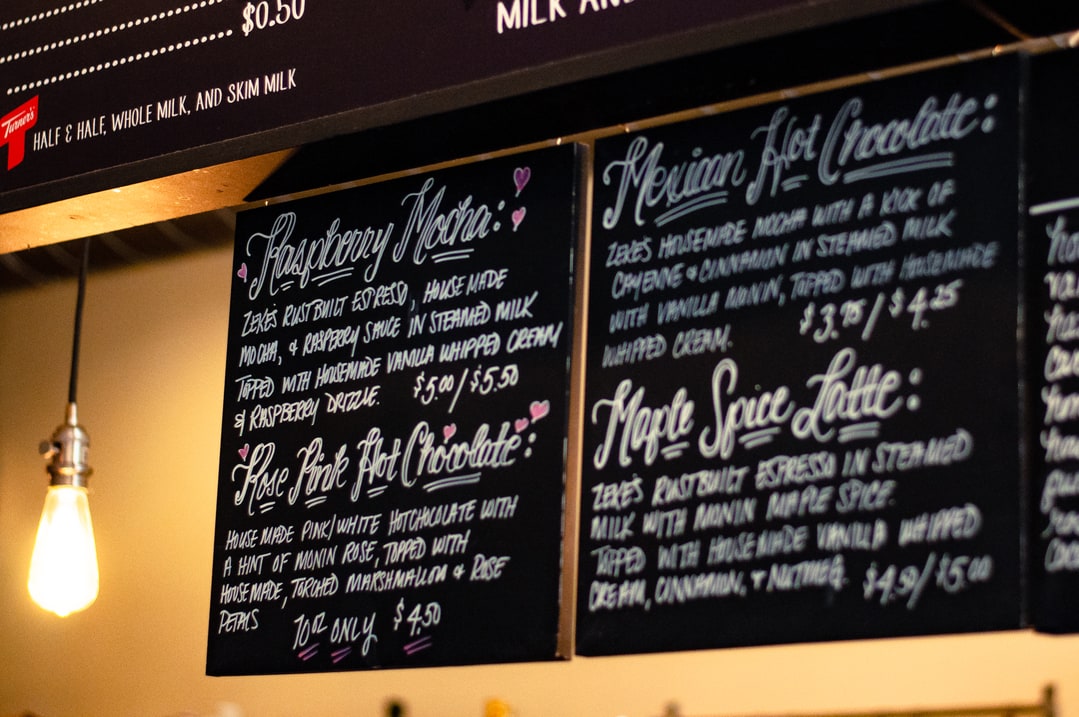 $0.50
MILK AND
Turner's
HALF & HALF, WHOLE MILK, AND SKIM MILK
Raspberry Mocha:
ZEKE'S RUSTBUILT ESPRESSO, HOUSE MADE
MOCHA, & RASPBERRY SAUCE IN STEAMED MILK
TOPPED WITH HOUSEMADE VANILLA WHIPPED CREAM
& RASPBERRY DRIZZLE. $5.00/$5.50
Rose Pink Hot Chocolate:
HOUSE MADE PINK/WHITE HOTCHOCOLATE WITH
A HINT OF MONIN ROSE, TOPPED WITH
HOUSEMADE, TORCHED MARSHMALLOW & ROSE
PETALS
10oz ONLY $4.50
Mexican Hot Chocolate:
ZEKE'S HOUSEMADE MOCHA WITH A KICK OF
CAYENNE & CINNAMON IN STEAMED MILK
WITH VANILLA MONIN, TOPPED WITH HOUSEMADE
WHIPPED CREAM. $3.75/$4.25
Maple Spice Latte:
ZEKE'S RUSTBUILT ESPRESSO IN STEAMED
MILK WITH MONIN MAPLE SPICE.
TOPPED WITH HOUSEMADE VANILLA WHIPPED
CREAM, CINNAMON, + NUTMEG. $4.50/$5.00